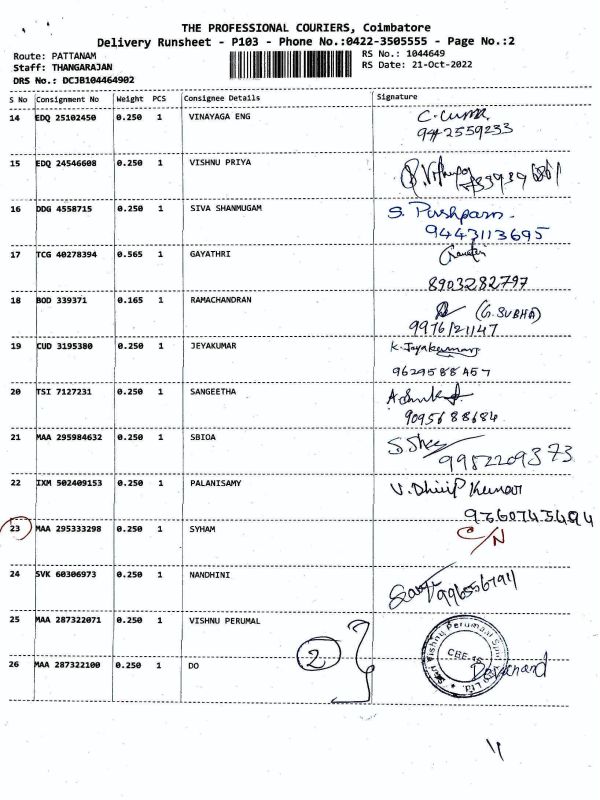 THE PROFESSIONAL COURIERS, Coimbatore
Delivery Runsheet - P103 - Phone No.:0422-3505555 - Page No.:2
Route: PATTANAM
RS No.: 1044649
Staff: THANGARAJAN
RS Date: 21-Oct-2022
DRS No.: DCJB104464902
S No Consignment No Weight PCS Consignee Details Signature
14 EDQ 25102450 0.250 1 VINAYAGA ENG
9442559233
15 EDQ 24546608 0.250 1 VISHNU PRIYA
16 DDG 4558715 0.250 1 SIVA SHANMUGAM S. Pushpam.
9443113695
17 TCG 40278394 0.565 1 GAYATHRI Gayatri
8903282797
18 BOD 339371 0.165 1 RAMACHANDRAN (G.SUBHA)
9976121147
19 CUD 3195380 0.250 1 JEYAKUMAR K. Jayakumar
9629588457
20 TSI 7127231 0.250 1 SANGEETHA
9095688684
21 MAA 295984632 0.250 1 SBIOA
9952209373
22 IXM 502409153 0.250 1 PALANISAMY V. Dhilip Kumar
23 MAA 295333298 0.250 1 SYHAM C/N
24 SVK 60306973 0.250 1 NANDHINI
25 MAA 287322071 0.250 1 VISHNU PERUMAL
Sri Vishnu Perumaal Spin
CBE-16
26 MAA 287322100 0.250 1 DO 2 Devanand